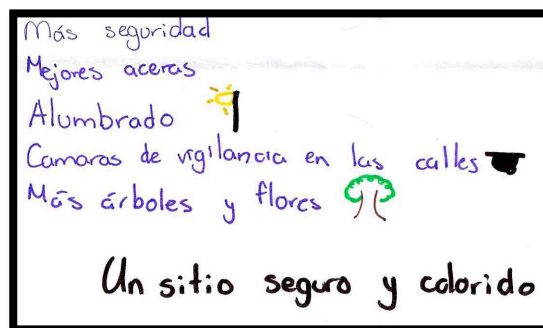 Más seguridad
Mejores aceras
Alumbrado
Camaras de vigilancia en las calles
Más árboles y flores
Un sitio seguro y colorido